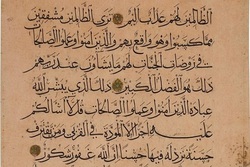 الظالمين لهم عذاب اليم ترى الظالمين مشفقين
مما كسبوا وهو واقع بهم والذين امنوا وعملوا الصالحات
في روضات الجنات لهم ما يشاؤن عند ربهم
ذلك هو الفضل الكبير ذلك الذي يبشر الله
عباده الذين امنوا وعملوا الصالحات قل لا اسالكم
عليه اجرا الا المودة في القربى ومن يقترف
حسنة نزد له فيها حسنا ان الله غفور شكور